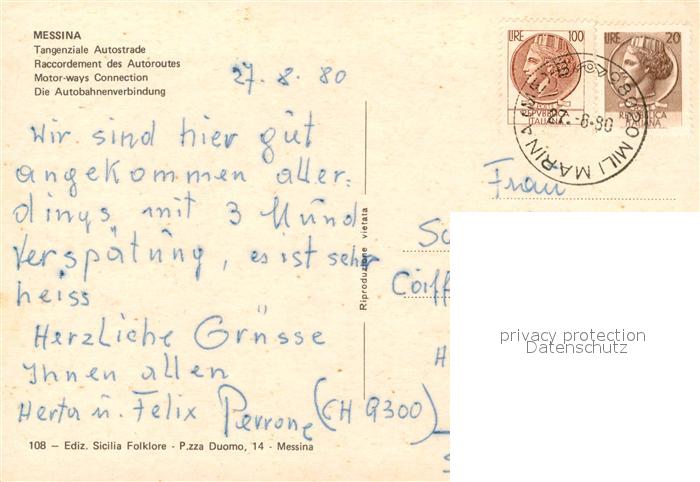 MESSINA
Tangenziale Autostrade
Raccordement des Autoroutes
Motor-ways Connection
Die Autobahnenverbindung
27. 8. 80
LIRE 100
LIRE 20
REPVBBLICA ITALIANA
REPVBBLICA ITALIANA
98020 MILI MARINA
27.-8-80
Wir sind hier gut
angekommen aller-
dings mit 3 Stund
Verspätung, es ist sehr
heiss
Herzliche Grüsse
Ihnen allen
Herta u. Felix Perrone (CH 9300)
Frau
Coiff
H
Riproduzione vietata
108 – Ediz. Sicilia Folklore - P.zza Duomo, 14 - Messina
privacy protection
Datenschutz